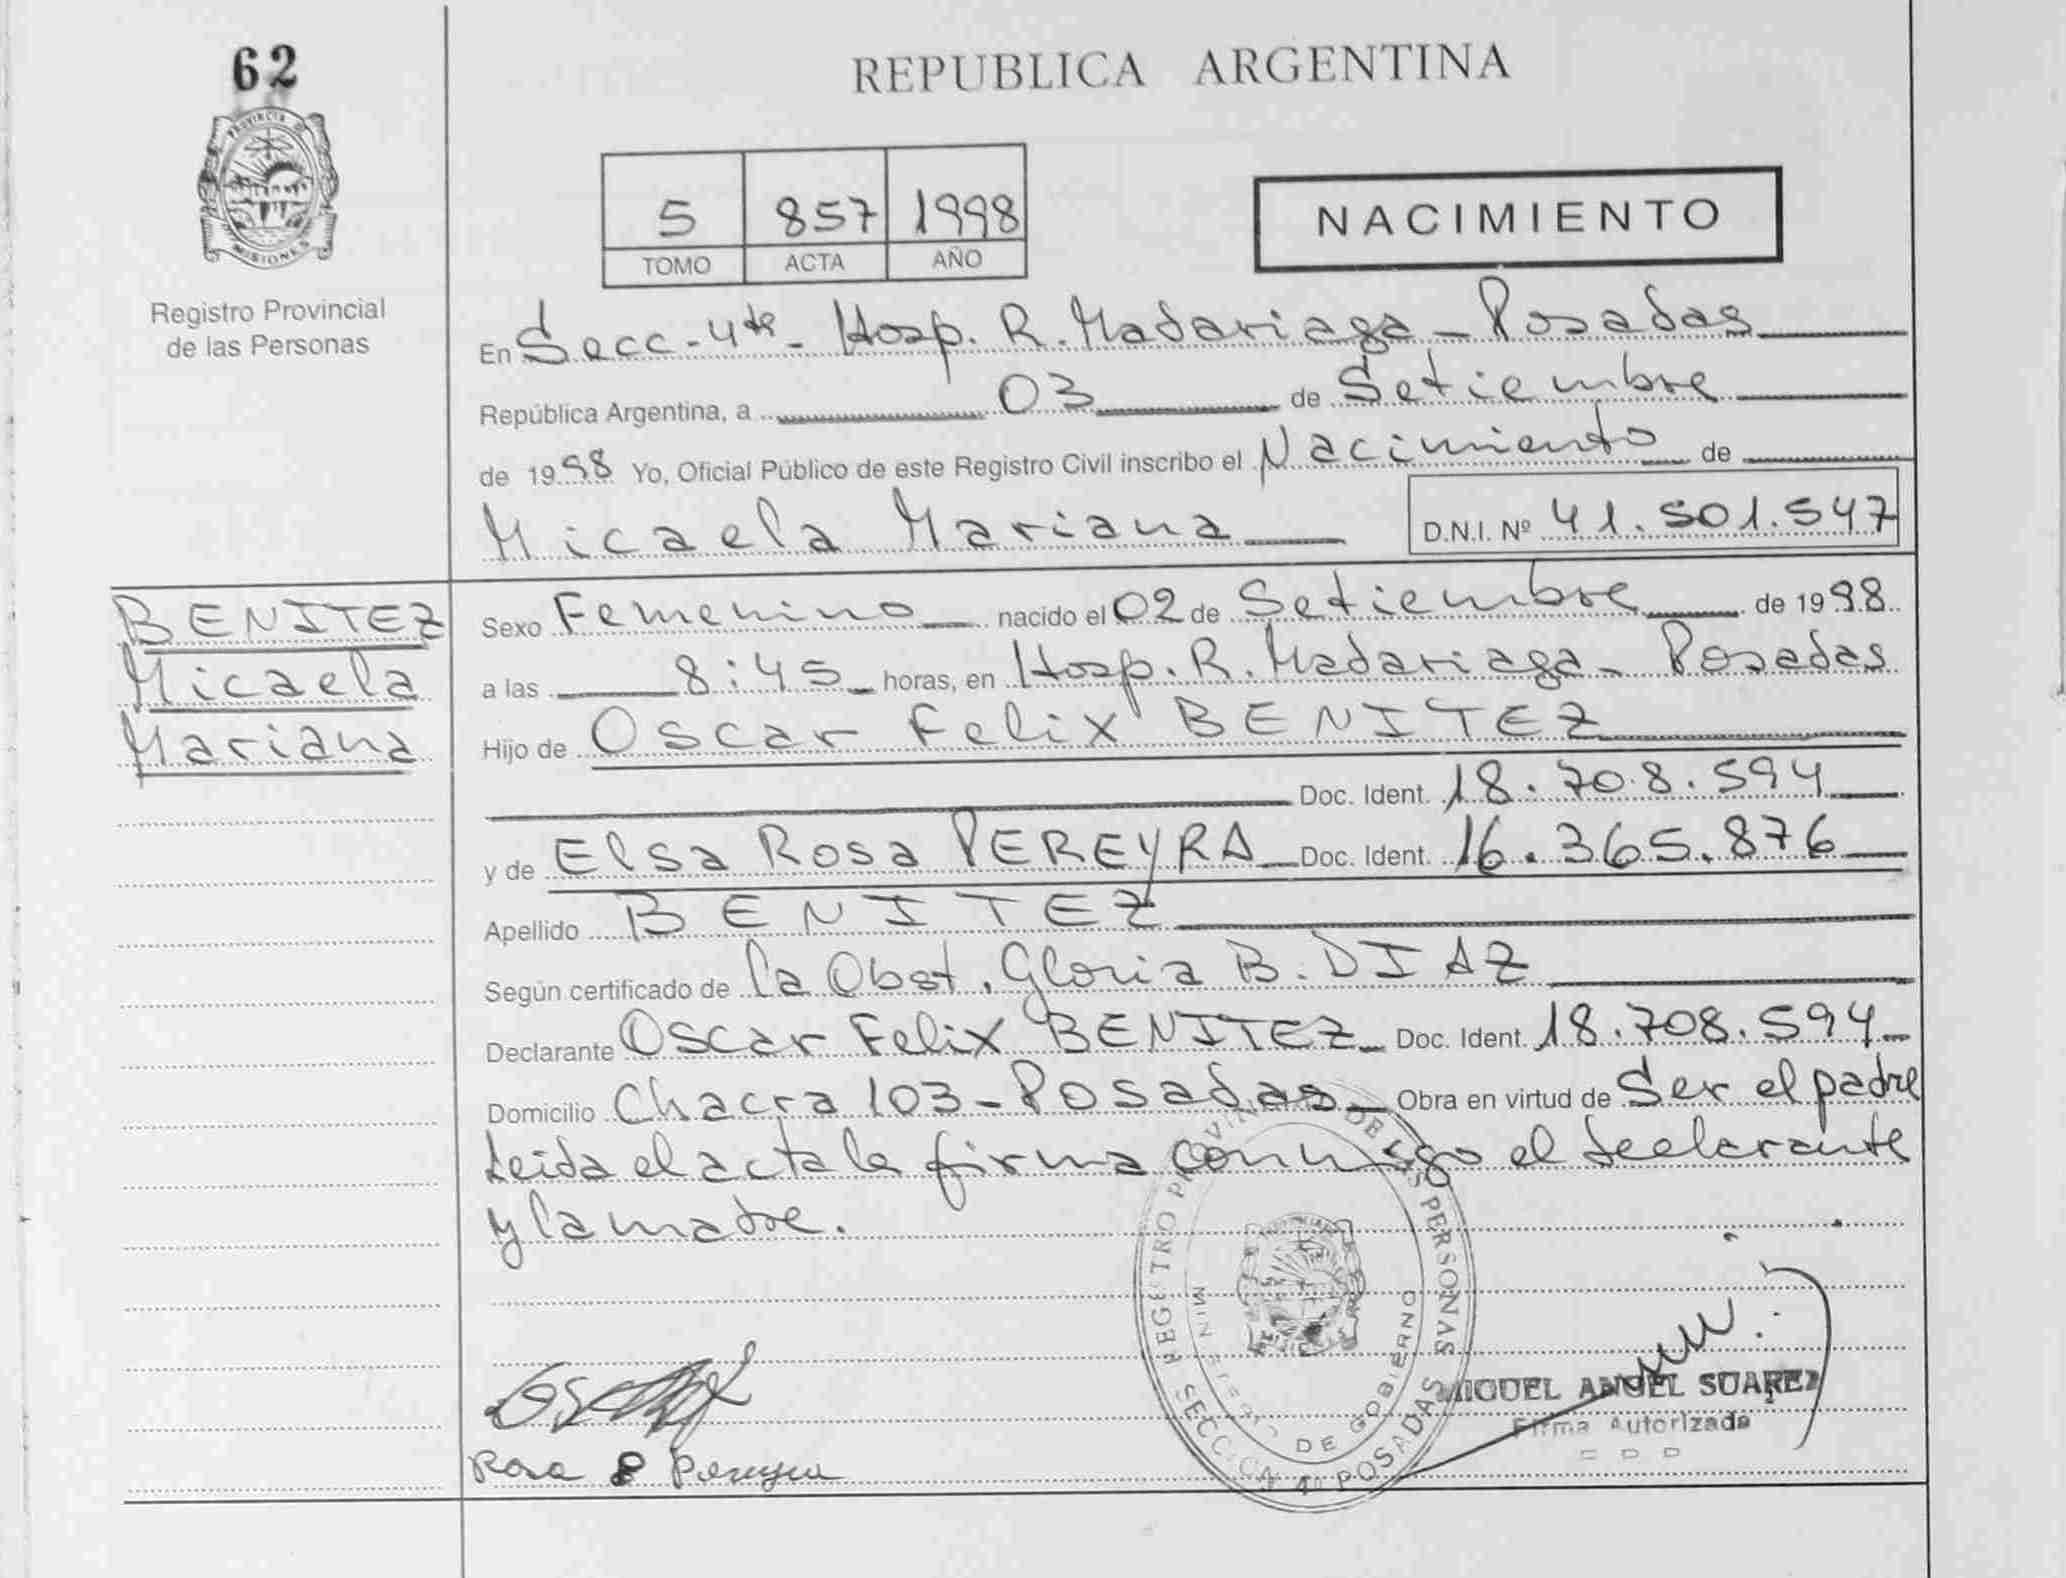 62
REPUBLICA ARGENTINA
PROVINCIA DE
MISIONES
Registro Provincial
de las Personas
5 857 1998
TOMO ACTA AÑO
NACIMIENTO
En Secc-4ta- Hosp. R. Madariaga - Posadas
República Argentina, a 03 de Setiembre
de 1998 Yo, Oficial Público de este Registro Civil inscribo el Nacimiento de
Micaela Mariana D.N.I. Nº 41.501.547
BENITEZ
Micaela
Mariana
Sexo Femenino nacido el 02 de Setiembre de 1998.
a las 8:45 horas, en Hosp. R. Madariaga - Posadas
Hijo de Oscar Felix BENITEZ
Doc. Ident. 18.708.594
y de Elsa Rosa PEREYRA Doc. Ident. 16.365.876
Apellido BENITEZ
Según certificado de la Obst. Gloria B. DIAZ
Declarante Oscar Felix BENITEZ Doc. Ident. 18.708.594
Domicilio Chacra 103 - Posadas Obra en virtud de Ser el padre
Leida el acta la firma conmigo el declarante
y la madre.
REGISTRO PROVINCIAL DE LAS PERSONAS
MINISTERIO DE GOBIERNO
SECCION 4º POSADAS
MIGUEL ANGEL SUAREZ
Firma Autorizada
Rosa E Pereyra